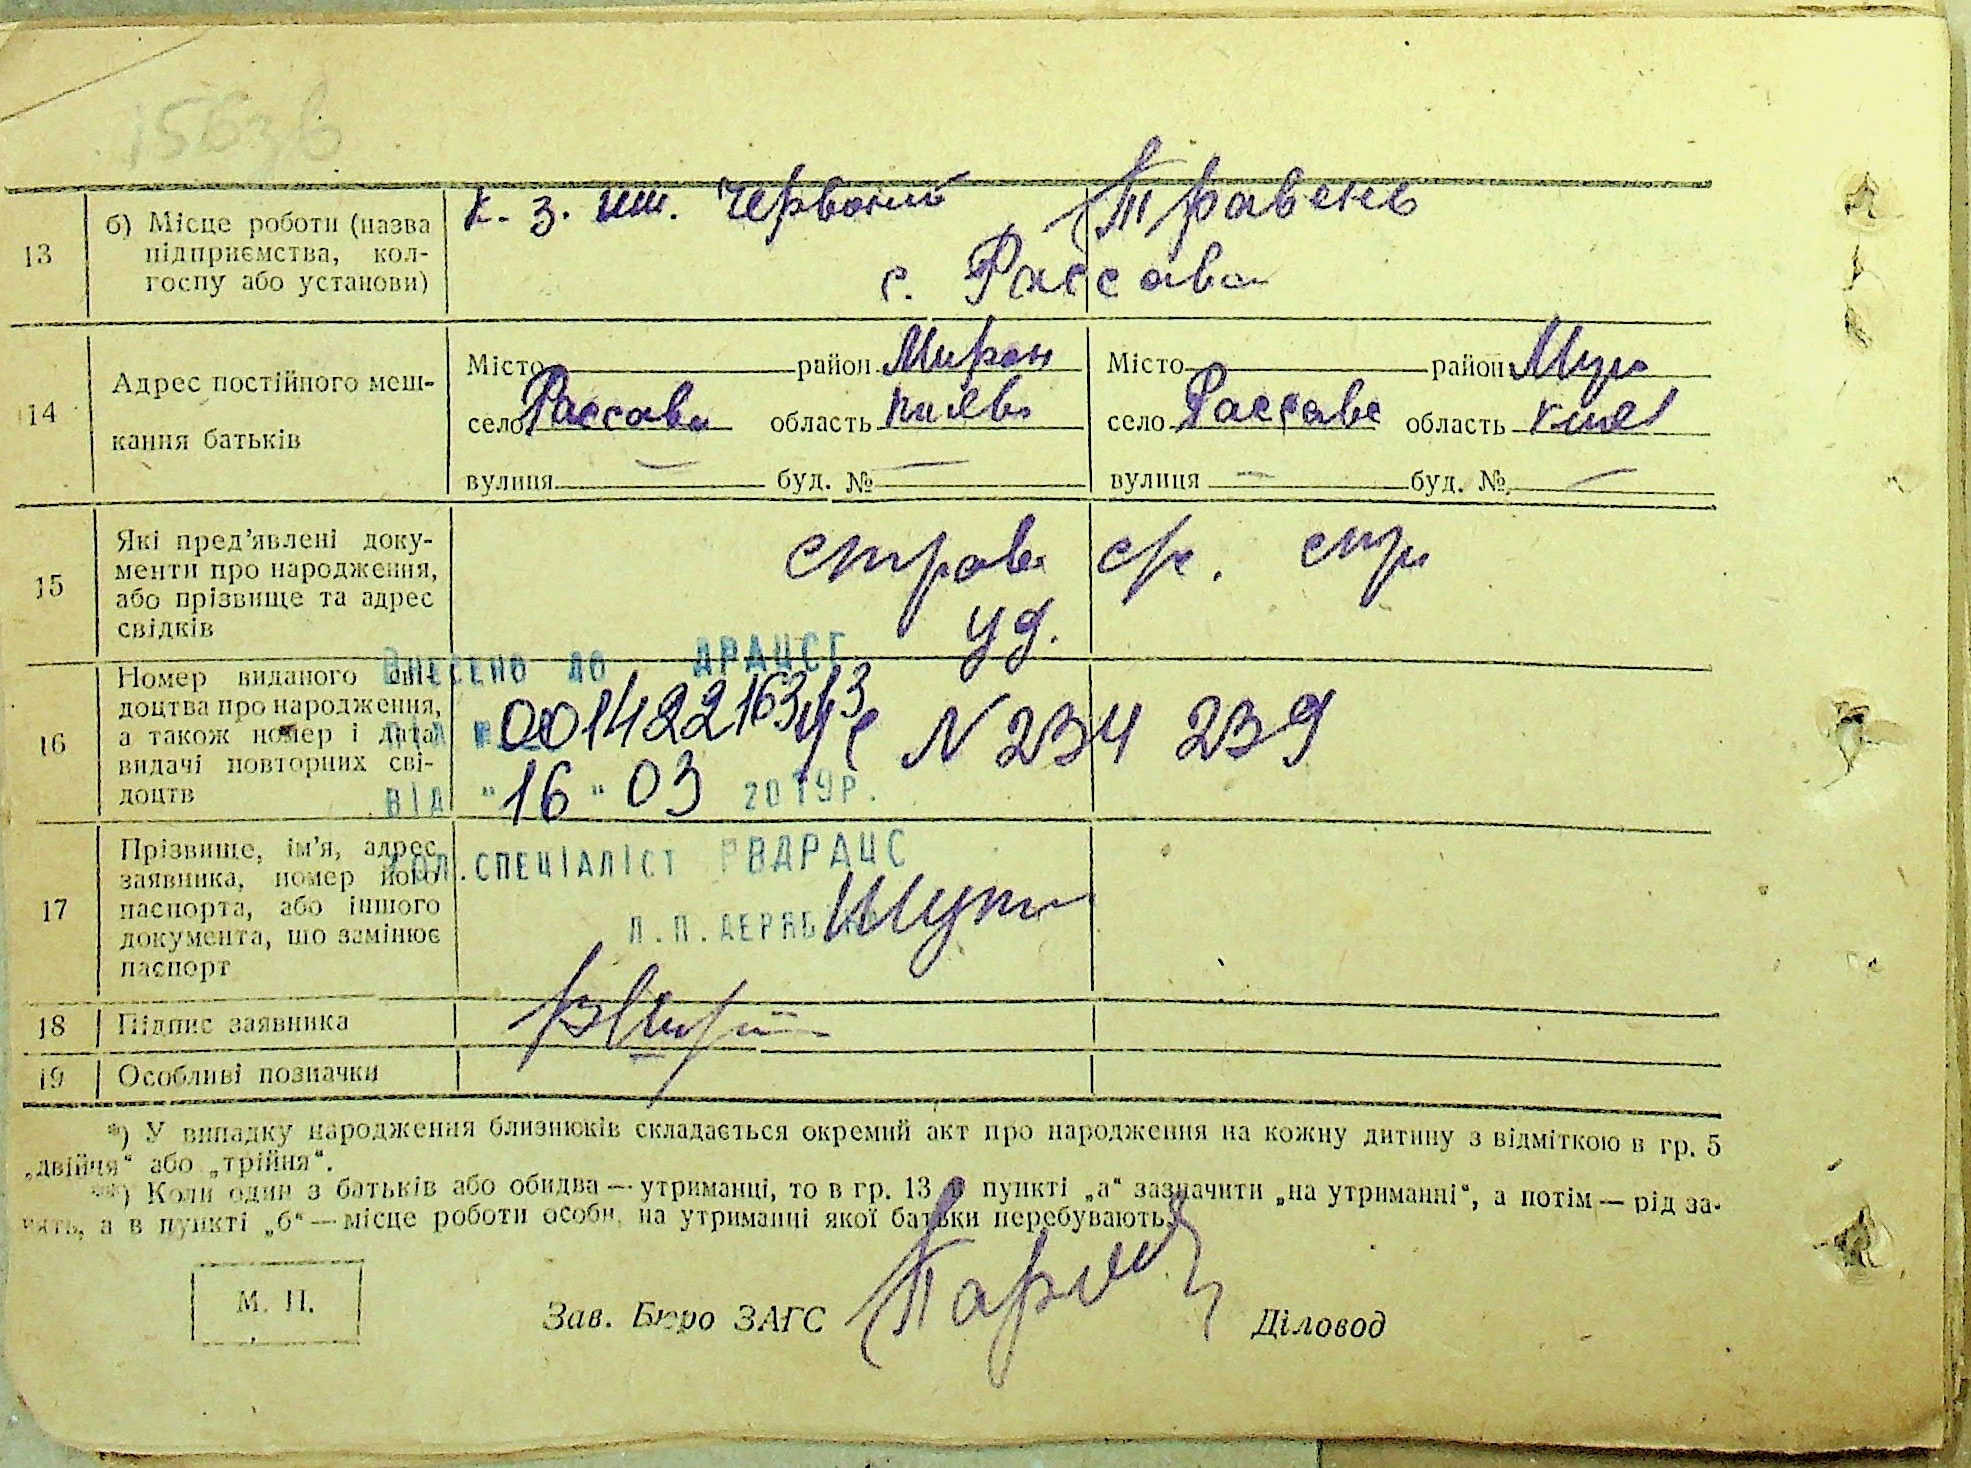 156зв
13
б) Місце роботи (назва
підприємства, кол-
госпу або установи)
к. з. им. Червоний Травень
с. Рассава
14
Адрес постійного меш-
кання батьків
Місто район Мирон Місто район Мир
село Рассава область Києв село Рассаве область Киев
вулиця — буд. № — вулиця — буд. № —
15
Які пред'явлені доку-
менти про народження,
або прізвище та адрес
свідків
справ ср. стр
уд.
16
Номер виданого сві-
доцтва про народження,
а також номер і дата
видачі повторних сві-
доцтв
ВНЕСЕНО ДО ДРАЦСГ
00142216343 УС N 234 239
ВІД "16" 03 2019р.
17
Прізвище, ім'я, адрес
заявника, номер його
паспорта, або іншого
документа, що замінює
паспорт
ГОЛ.СПЕЦІАЛІСТ РВДРАЦС
Л.П.
18
Підпис заявника
19
Особливі позначки
*) У випадку народження близнюків складається окремий акт про народження на кожну дитину з відміткою в гр. 5
„двійня“ або „трійня“.
**) Коли один з батьків або обидва — утриманці, то в гр. 13 в пункті „а“ зазначити „на утриманні“, а потім — рід за-
нять, а в пункті „б“ — місце роботи особи, на утриманні якої батьки перебувають.
М. П.
Зав. Бюро ЗАГС
Діловод